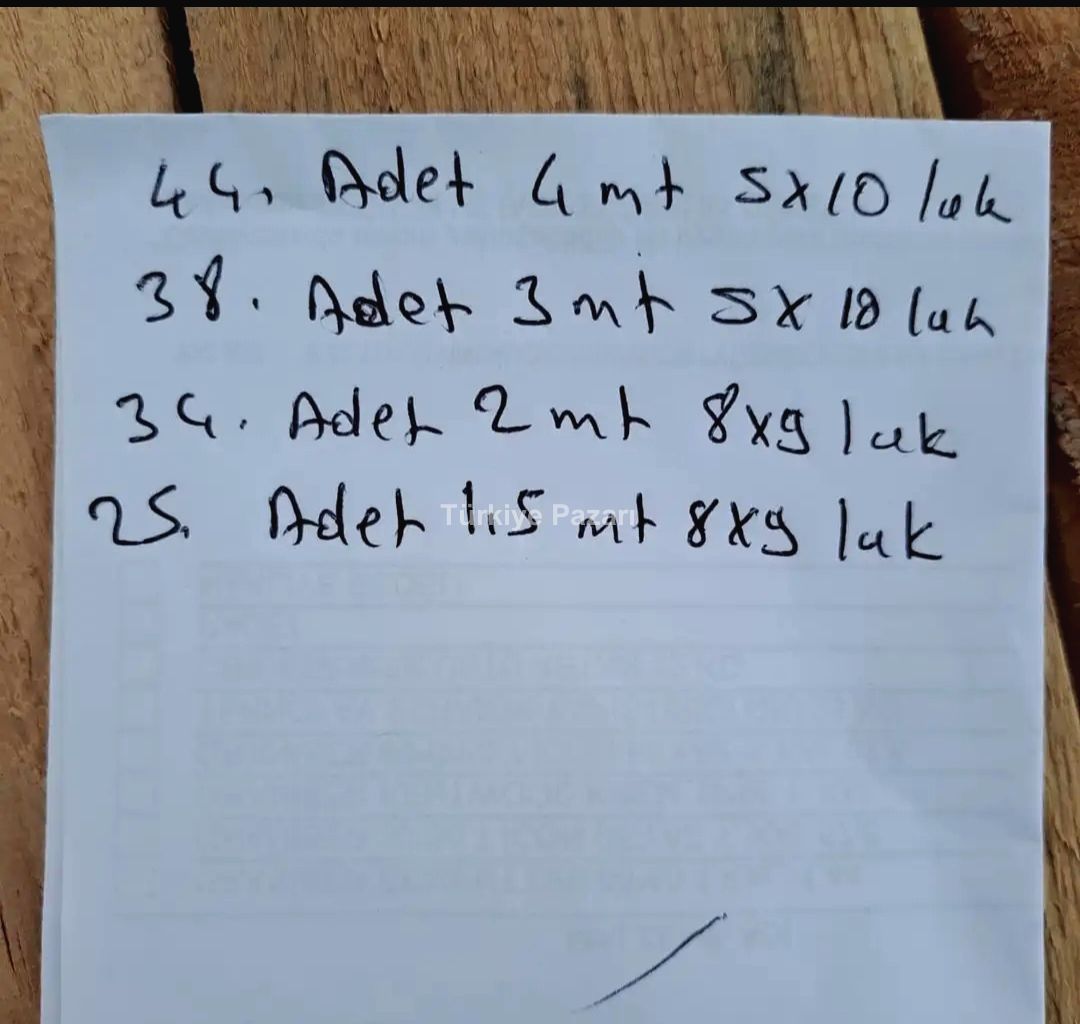 44. Adet 4mt 5x10 luk
38. Adet 3mt 5x10 luk
34. Adet 2mt 8x9 luk
25. Adet 1.5 mt 8x9 luk
Türkiye Pazarı